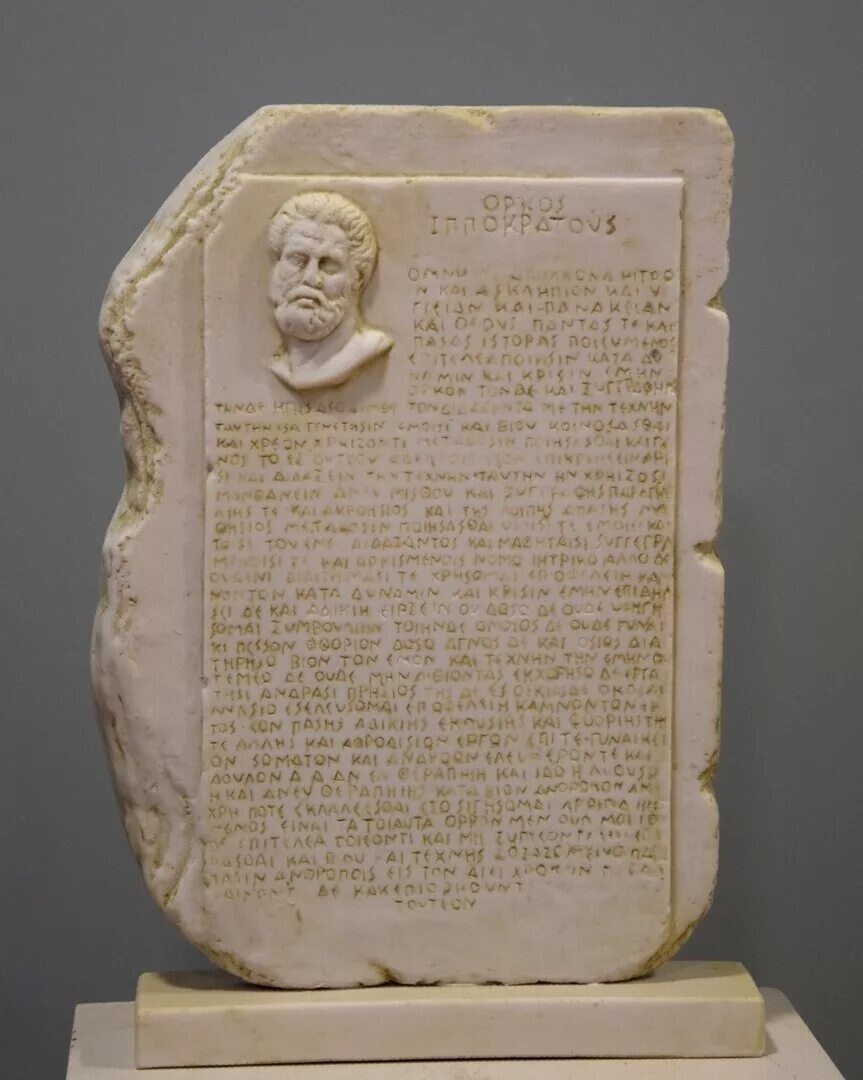 ΟΡΚΟS
ΙΠΠΟΚΡΑΤΟΥS
ΟΜΝΥ ΑΠΟΛΛΩΝΑ ΗΙΤΡΟ
Ν ΚΑΙ ΑSΚΛΗΠΙΟΝ ΚΑΙ Υ
ΓΙΕΙΑΝ ΚΑΙ ΠΑΝΑΚΕΙΑΝ
ΚΑΙ ΘΕΟΥS ΠΑΝΤΑS ΤΕ ΚΑΙ
ΠΑSΑS ΙSΤΟΡΑS ΠΟΙΕΥΜΕΝΟS
ΕΠΙΤΕΛΕΑ ΠΟΙΗSΙΝ ΚΑΤΑ ΔΥ
ΝΑΜΙΝ ΚΑΙ ΚΡΙSΙΝ ΕΜΗΝ
ΟΡΚΟΝ ΤΟΝΔΕ ΚΑΙ ΞΥΓΓΡΑΦΗΝ
ΤΗΝΔΕ ΤΟΝ ΔΙΔΑΞΑΝΤΑ ΜΕ ΤΗΝ ΤΕΧΝΗΝ
ΤΑΥΤΗΝ ΙSΑ ΓΕΝΕΤΗSΙΝ ΕΜΟΙSΙ ΚΑΙ ΒΙΟΥ ΚΟΙΝΟSΑSΘΑΙ
ΚΑΙ ΧΡΕΟΝ ΧΡΗΙΖΟΝΤΙ ΜΕΤΑΔΟSΙΝ ΠΟΙΗSΑSΘΑΙ ΚΑΙ ΓΕ
ΝΟS ΤΟ ΕΞ
SΙ ΚΑΙ ΔΙΔΑΞΕΙΝ ΤΗΝ ΤΕΧΝΗΝ ΤΑΥΤΗΝ ΗΝ ΧΡΗΙΖΟSΙ
ΜΑΝΘΑΝΕΙΝ ΑΝΕΥ ΜΙSΘΟΥ ΚΑΙ ΞΥΓΓΡΑΦΗS ΠΑΡΑΓΓΕ
ΛΙΗS ΤΕ ΚΑΙ ΑΚΡΟΗSΙΟS ΚΑΙ ΤΗS ΛΟΙΠΗS ΑΠΑSΗS ΜΑ
ΘΗSΙΟS ΜΕΤΑΔΟSΙΝ ΠΟΙΗSΑSΘΑΙ ΥΙΟΙSΙ ΤΕ ΕΜΟΙSΙ ΚΑΙ
ΤΟΙSΙ ΤΟΥ ΕΜΕ ΔΙΔΑΞΑΝΤΟS ΚΑΙ ΜΑΘΗΤΑΙSΙ SΥΓΓΕΓΡΑ
ΜΕΝΟΙSΙ ΤΕ ΚΑΙ ΟΡΚΙSΜΕΝΟΙS ΝΟΜΟ ΙΗΤΡΙΚΟ ΑΛΛΟ ΔΕ
ΟΥΔΕΝΙ ΔΙΑΙΤΗΜΑSΙ ΤΕ ΧΡΗSΟΜΑΙ ΕΠ ΟΦΕΛΕΙΗ ΚΑΜ
ΝΟΝΤΟΝ ΚΑΤΑ ΔΥΝΑΜΙΝ ΚΑΙ ΚΡΙSΙΝ ΕΜΗΝ ΕΠΙ ΔΗΛ
SΕΙ ΔΕ ΚΑΙ ΑΔΙΚΙΗ ΕΙΡΞΕΙΝ ΟΥ ΔΟSΟ ΔΕ ΟΥΔΕ ΥΦΗΓΗ
SΟΜΑΙ ΞΥΜΒΟΥΛΙΗΝ ΤΟΙΗΝΔΕ ΟΜΟΙΟS ΔΕ ΟΥΔΕ ΓΥΝΑΙ
ΚΙ ΠΕSSΟΝ ΦΘΟΡΙΟΝ ΔΟSΟ ΑΓΝΟS ΔΕ ΚΑΙ ΟSΙΟS ΔΙΑ
ΤΗΡΗSΟ ΒΙΟΝ ΤΟΝ ΕΜΟΝ ΚΑΙ ΤΕΧΝΗΝ ΤΗΝ ΕΜΗΝ Ο
ΤΕΜΕΟ ΔΕ ΟΥΔΕ ΜΗΝ ΛΙΘΙΟΝΤΑS ΕΚΧΟΡΗSΟ ΔΕ ΕΡΓΑ
ΤΗSΙ ΑΝΔΡΑSΙ ΠΡΗΞΙΟS ΤΗS ΔΕ ΕS ΟΙΚΙΑS ΔΕ ΟΚΟSΑS
ΕSΕΛΕΥSΟΜΑΙ ΕΠ ΟΦΕΛΕΙΗ ΚΑΜΝΟΝΤΟΝ ΕΚ
ΤΟS ΕΟΝ ΠΑSΗS ΑΔΙΚΙΗS ΕΚΟΥSΙΗS ΚΑΙ ΦΘΟΡΙΗS ΤΗS
ΤΕ ΑΛΛΗS ΚΑΙ ΑΦΡΟΔΙSΙΟΝ ΕΡΓΟΝ ΕΠΙ ΤΕ ΓΥΝΑΙΚΕΙ
ΟΝ SΟΜΑΤΟΝ ΚΑΙ ΑΝΔΡΟΟΝ ΕΛΕΥΘΕΡΟΝ ΤΕ ΚΑΙ
ΔΟΥΛΟΝ Α Δ ΑΝ ΕΝ ΘΕΡΑΠΗΙΗ ΚΑΙ ΙΔΟ Η ΑΚΟΥSΟ
Η ΚΑΙ ΑΝΕΥ ΘΕΡΑΠΗΙΗS ΚΑΤΑ ΒΙΟΝ ΑΝΘΡΟΠΟΝ Α ΜΗ
ΧΡΗ ΠΟΤΕ ΕΚΛΑΛΕΕSΘΑΙ ΕΞΟ SΙΓΗSΟΜΑΙ ΑΡΡΗΤΑ
ΜΕΝΟS ΕΙΝΑΙ ΤΑ ΤΟΙΑΥΤΑ ΟΡΚΟΝ ΜΕΝ ΟΥΝ ΜΟΙ ΤΟ
ΕΠΙΤΕΛΕΑ ΠΟΙΕΟΝΤΙ ΚΑΙ ΜΗ ΞΥΓΧΕΟΝΤΙ
ΑSΘΑΙ ΚΑΙ ΒΙΟΥ ΚΑΙ ΤΕΧΝΗS ΔΟΞΑΖΟΜΕΝΟ ΠΑΡ
ΑSΙΝ ΑΝΘΡΟΠΟΙS ΕΙS ΤΟΝ ΑΙΕΙ ΧΡΟΝΟΝ
ΔΕ ΚΑΙ ΕΠΙΟΡΚΟΥΝΤ
ΤΟΥΤΕΟΝ